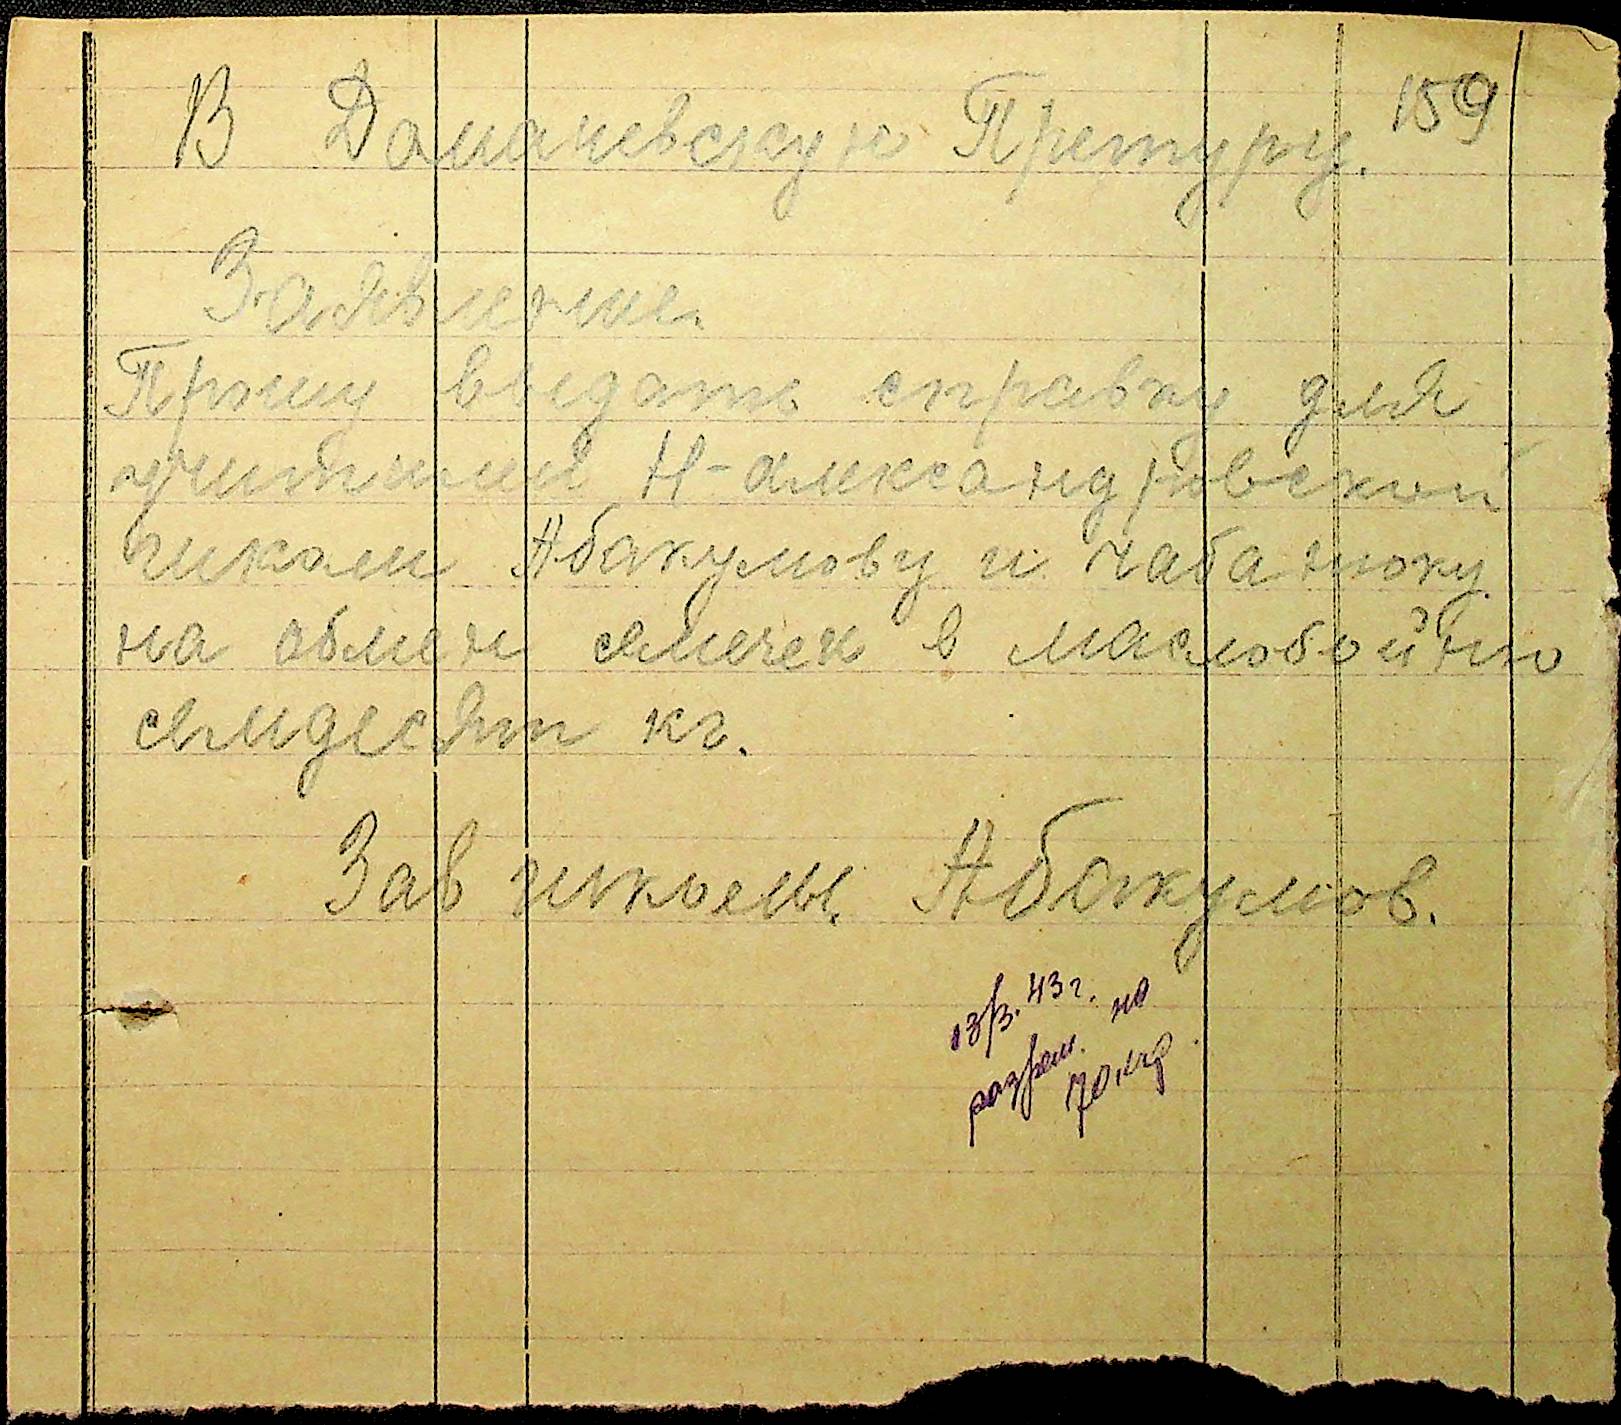 159
В Доманевскую Претуру.
Заявление.
Прошу выдать справку для
учителей Н-александровской
школи Абакумову и Чабанюку
на обмен семечек в маслобойню
семдесят кг.
Зав школы. Абакумов.
13/3. 43 г.
разреш. на
70 кг